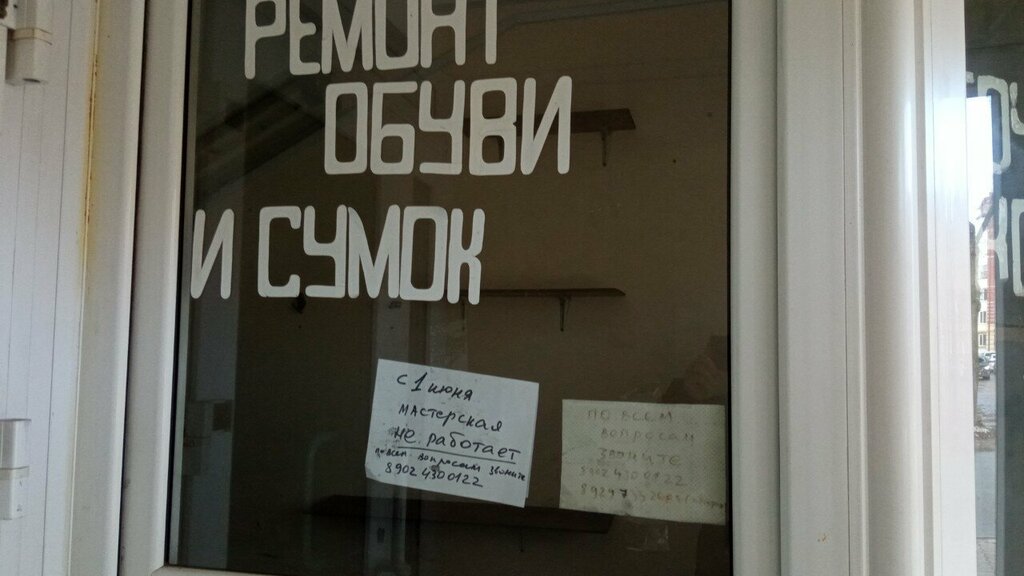 РЕМОНТ
ОБУВИ
И СУМОК
с 1 июня
мастерская
не работает
по всем вопросам звоните
8902 430 0122
ПО ВСЕМ
ВОПРОСАМ
ЗВОНИТЕ
8902 430 0122